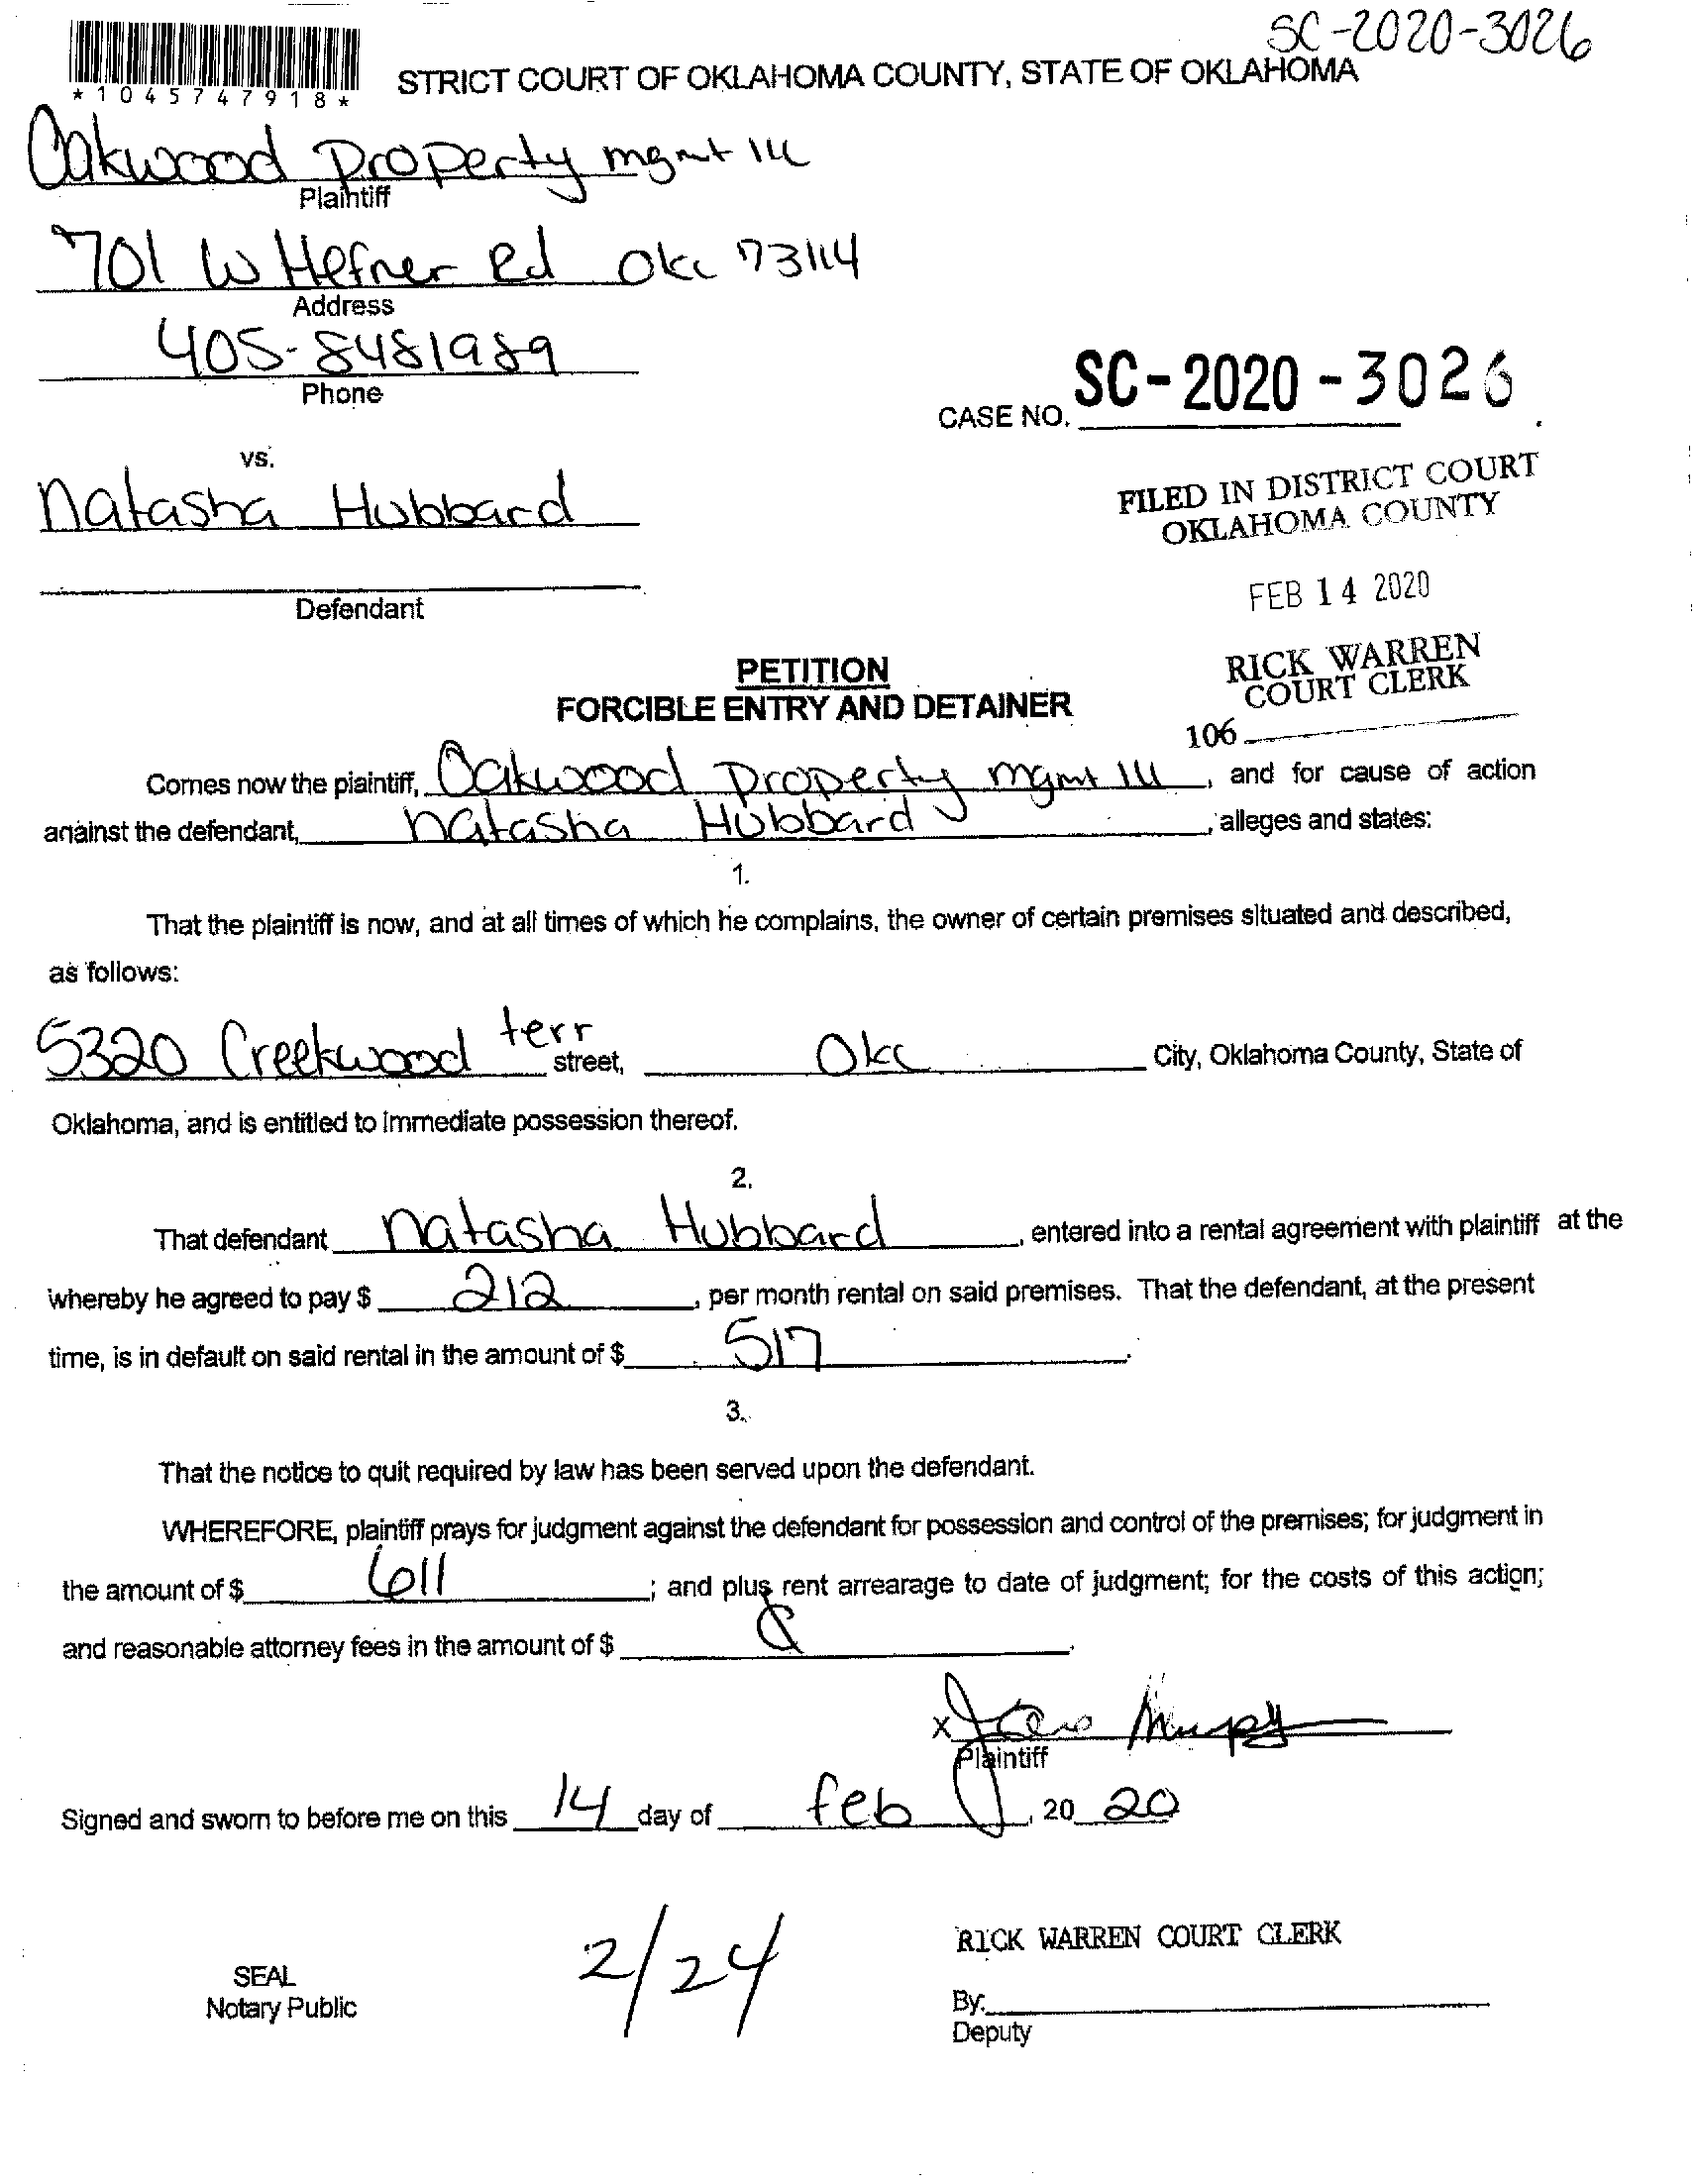 SC-2020-3026
STRICT COURT OF OKLAHOMA COUNTY, STATE OF OKLAHOMA
* 1 0 4 5 7 4 7 9 1 8 *
Oakwood Property mgmt
Plaintiff
701 W Hefner Rd Okc 73114
Address
405-8481989
Phone
CASE NO. SC-2020-3026.
vs.
Natasha Hubbard
FILED IN DISTRICT COURT
OKLAHOMA COUNTY
FEB 14 2020
Defendant
RICK WARREN
COURT CLERK
106
PETITION
FORCIBLE ENTRY AND DETAINER
Comes now the plaintiff, Oakwood Property mgmt, and for cause of action
against the defendant, natasha Hubbard, alleges and states:
1.
That the plaintiff is now, and at all times of which he complains, the owner of certain premises situated and described,
as follows:
5320 Creekwood terr street, Okc City, Oklahoma County, State of
Oklahoma, and is entitled to immediate possession thereof.
2.
That defendant natasha Hubbard, entered into a rental agreement with plaintiff at the
whereby he agreed to pay $ 212, per month rental on said premises. That the defendant, at the present
time, is in default on said rental in the amount of $ 517.
3.
That the notice to quit required by law has been served upon the defendant.
WHEREFORE, plaintiff prays for judgment against the defendant for possession and control of the premises; for judgment in
the amount of $ 611; and plus rent arrearage to date of judgment; for the costs of this action;
and reasonable attorney fees in the amount of $
x
Plaintiff
Signed and sworn to before me on this 14 day of feb, 20 20
2/24
RICK WARREN COURT CLERK
SEAL
Notary Public
By:
Deputy